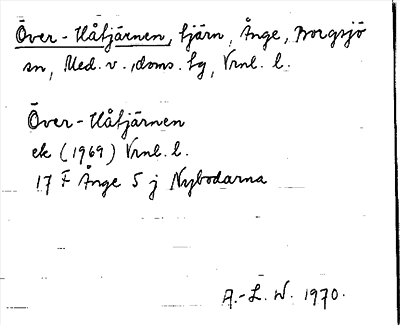 Över-Håtjärnen, tjärn, Ånge, Borgsjö
sn, Med. v. doms. tg, Vrnl. l.
Över-Håtjärnen
ek (1969) Vrnl. l.
17 F Ånge 5 j Nybodarna
A.-L. W. 1970.